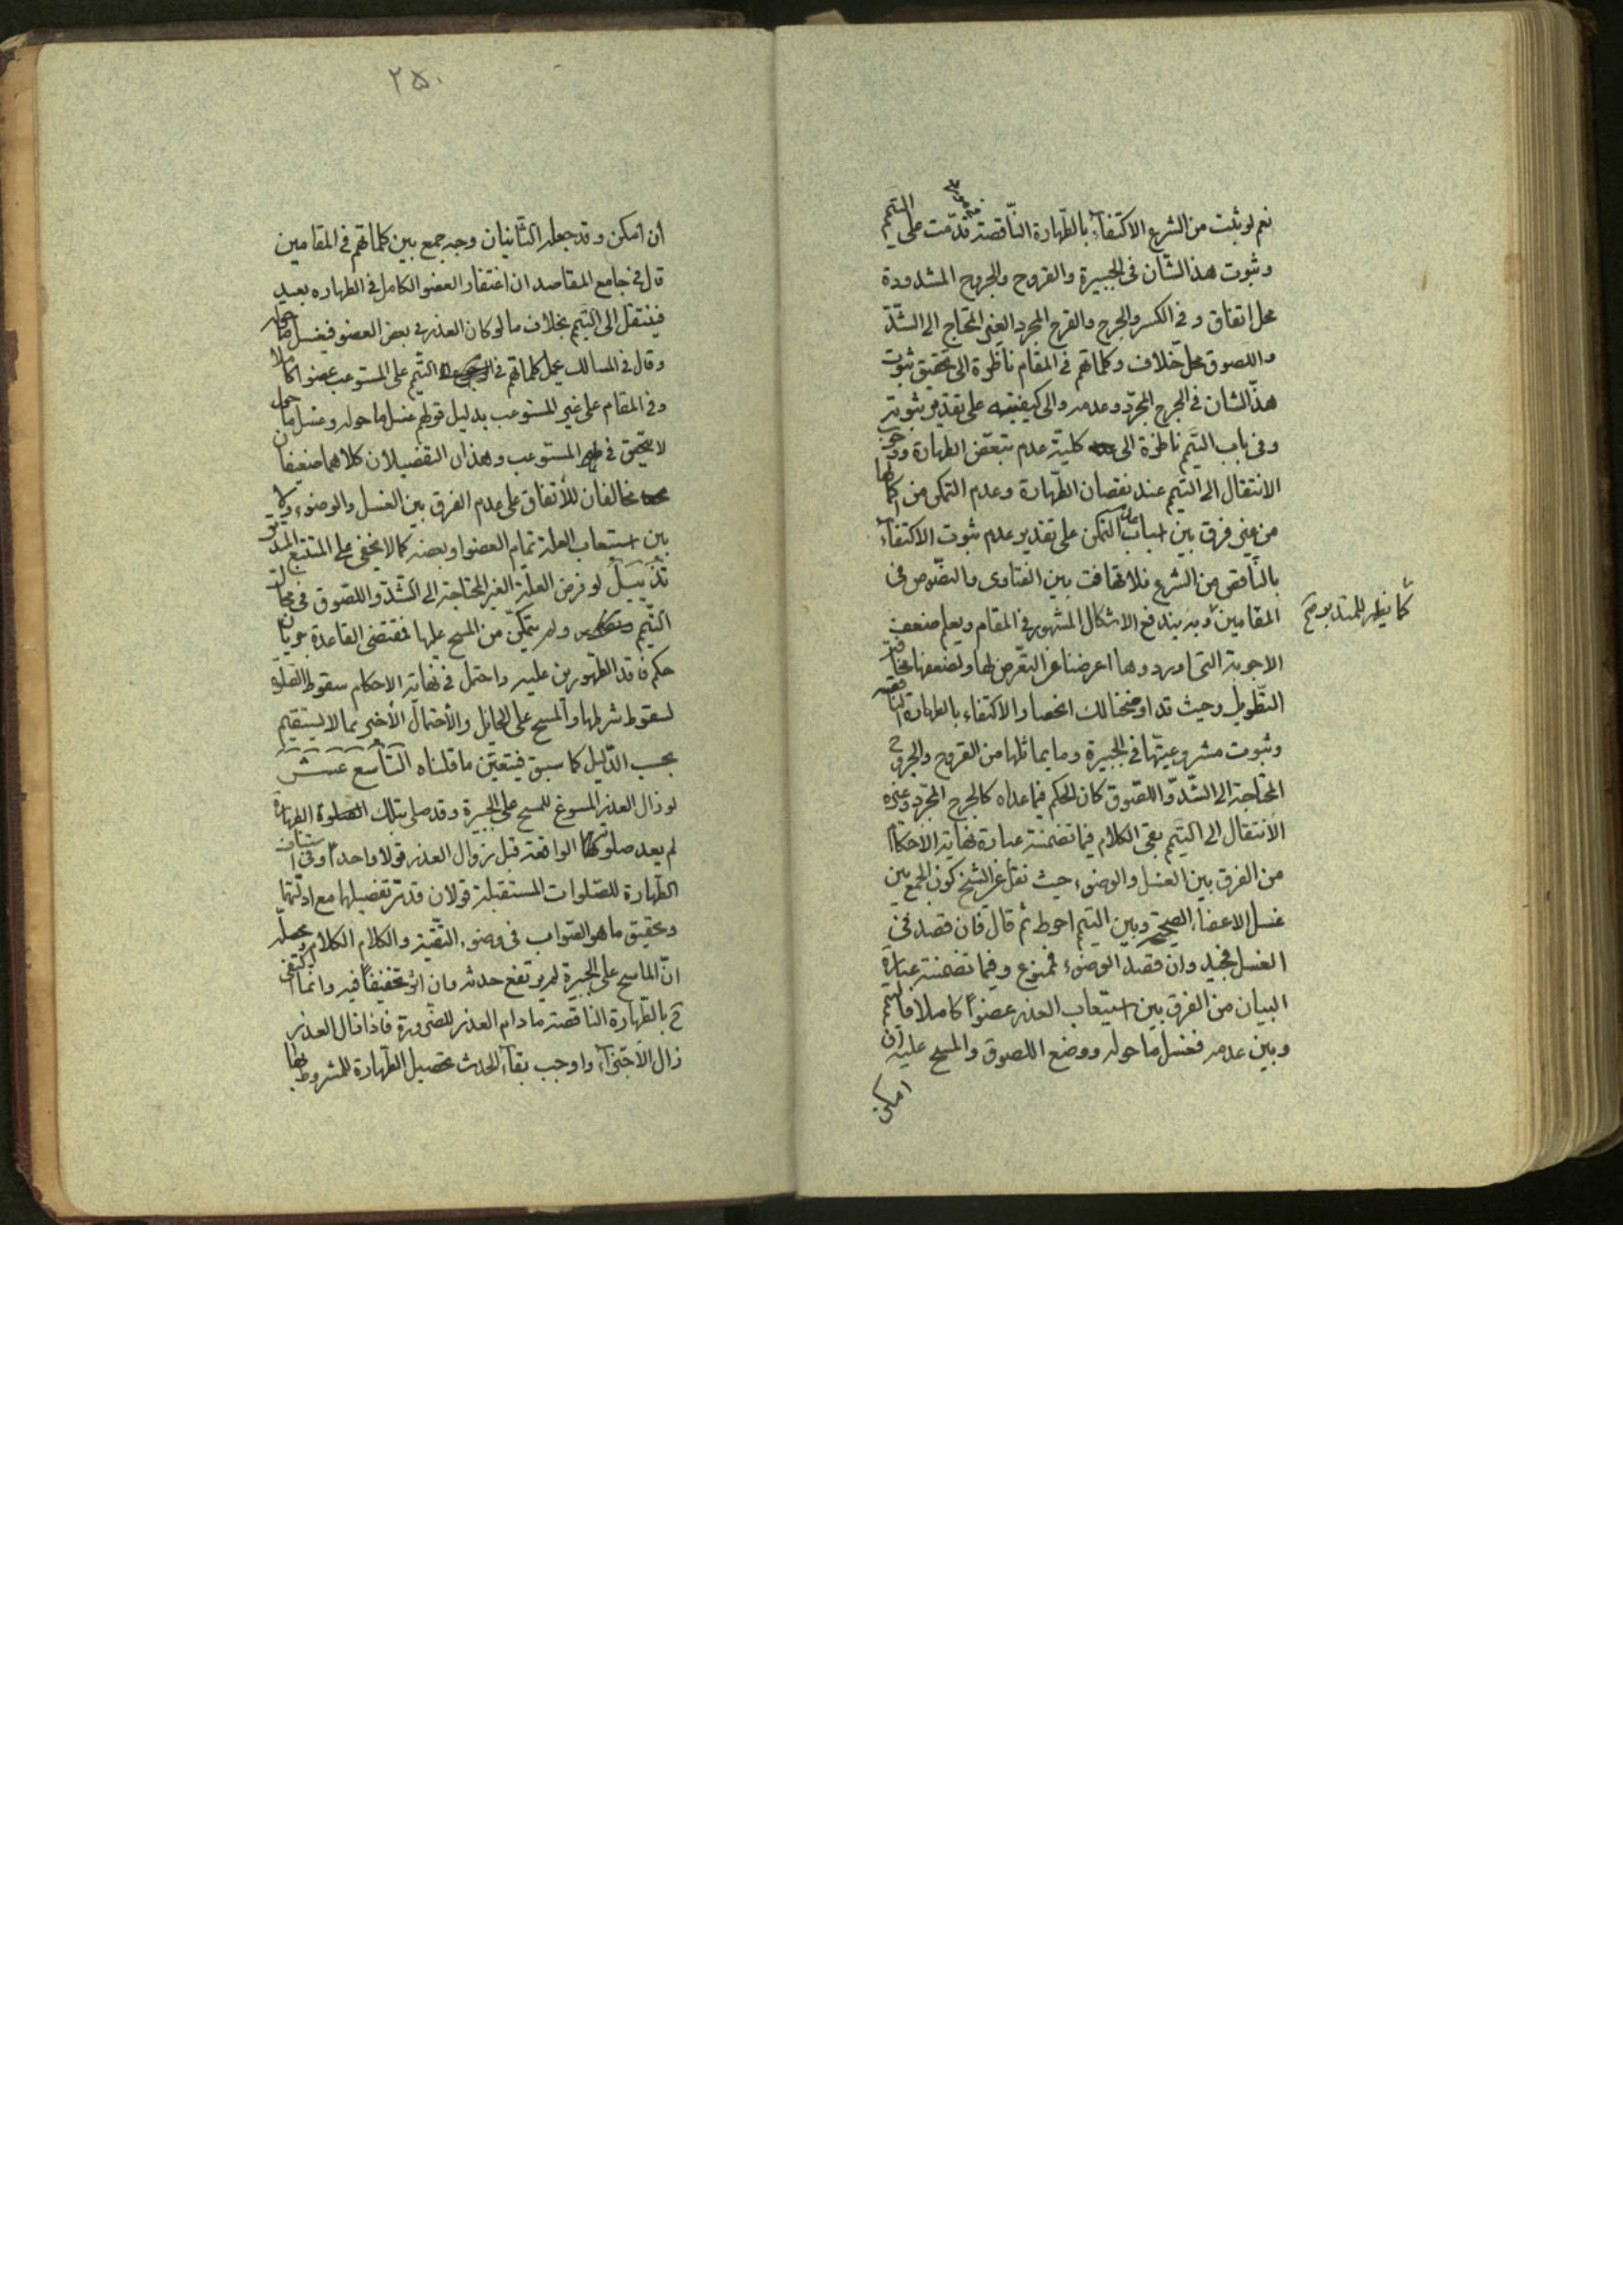 نعم لو ثبت من الشرع الاكتفاء بالطّهارة النّاقصة قدّمت على التيمم
وثبوت هذا الشّان فى الجبيرة والقروح والجروح المشدودة
محل اتفاق و فى الكسر والجرح والقرح المجرد الغير المحتاج الى الشدّ
واللصوق محلّ خلاف وكلماتهم فى المقام ناظرة الى تحقيق ثبوت
هذا الشان فى الجرح المجرّد وعدمه والى كيفيته على تقدير ثبوته
وفى باب التيمّم ناظرة الى كلية عدم تبعّض الطهارة ووجوب
الانتقال الى التيمم عند نقصان الطّهارة وعدم التمكن من اكمالها
من غير فرق بين اسباب عدم التمكن على تقدير عدم ثبوت الاكتفاء
بالنّاقص من الشرع فلا تهافت بين الفتاوى والنصّوص فى
المقامين وبه يندفع الاشكال المشهور فى المقام ويعلم ضعف
كما يظهر للمتدبر
الاجوبة التى اوردوها اعرضنا عن التعّرض لها ولضعفها مخافة
التّطويل وحيث قد اوضحنا لك انحصار الاكتفاء بالطهارة النّاقصه
وثبوت مشروعيتّها فى الجبيرة وما يماثلها من القروح والجروح
المحتاجة الى الشدّ واللصّوق كان الحكم فيما عداه كالجرح المجرّد وغيره
الانتقال الى التيمّم بقى الكلام فيما تضمنته عبارة نهاية الاحكام
من الفرق بين الغسل والوضوء حيث نقل عن الشيخ كون الجمع بين
غسل الاعضاء الصحيحة وبين التيمم احوط ثم قال فان قصد فى
الغسل فجيد وان قصد الوضوء فممنوع وفيما تضمنته عبارة
البيان من الفرق بين استيعاب العذر عضواً كاملا فالتيمم
وبين عدمه فغسل ما حوله ووضع اللصوق والمسح عليه ان
امكن
٢٥٠
ان امكن وقد جعله الثّانيان وجه جمع بين كلماتهم فى المقامين
قال فى جامع المقاصد ان اغتفار العضو الكامل فى الطهاره بعيد
فينتقل الى التيمم بخلاف ما لو كان العذر فى بعض العضو فيغسل ما حوله
وقال فى المسالك يحمل كلماتهم فى التيمّم على المستوعب عضوا كاملا
وفى المقام على غير المستوعب بدليل قولهم غسل ما حوله وغسل ما حول
لا يتحقق فى المستوعب وهذان التفضيلان كلاهما ضعيفان
مخالفان للأتفاق على عدم الفرق بين الغسل والوضوء ولا
بين استيعاب العلة تمام العضو او بعضه كما لا يخفى على المتتبع المدقق
تذييل لو فرض العلّة الغير المحتاجة الى الشّدّ واللصّوق فى محال
التّيمّم ولم يتمكّن من المسح عليها فمقتضى القاعدة جريان
حكم فاقد الطّهورين عليه واحتمل فى نهاية الاحكام سقوط الصّلوة
لسقوط شرطها والمسح على الحايل والأحتمال الأخير مما لا يستقيم
بحسب الدّليل كما سبق فيتعيّن ما قلناه التّاسع عشر
لو زال العذر المسوغ للمسح على الجبيرة وقد صلى بتلك الطهارة
لم يعد صلوته الواقعة قبل زوال العذر قولا واحداً وفى استيناف
الطّهارة للصّلوات المستقبلة قولان قد مرّ تفضيلها مع ادلّتها
وتحقيق ما هو الصّواب فى وضوء التّقيّة والكلام الكلام ومحصلّه
انّ الماسح على الجبيرة لم يرتفع حدثه وان اثّر تخفيفاً فيه وانما اكتفى
ح بالطّهارة النّاقصة مادام العذر للضّرورة فاذا زال العذر
زال الاجتزاء واوجب بقاء الحدث تحصيل الطّهارة للمشروط بها